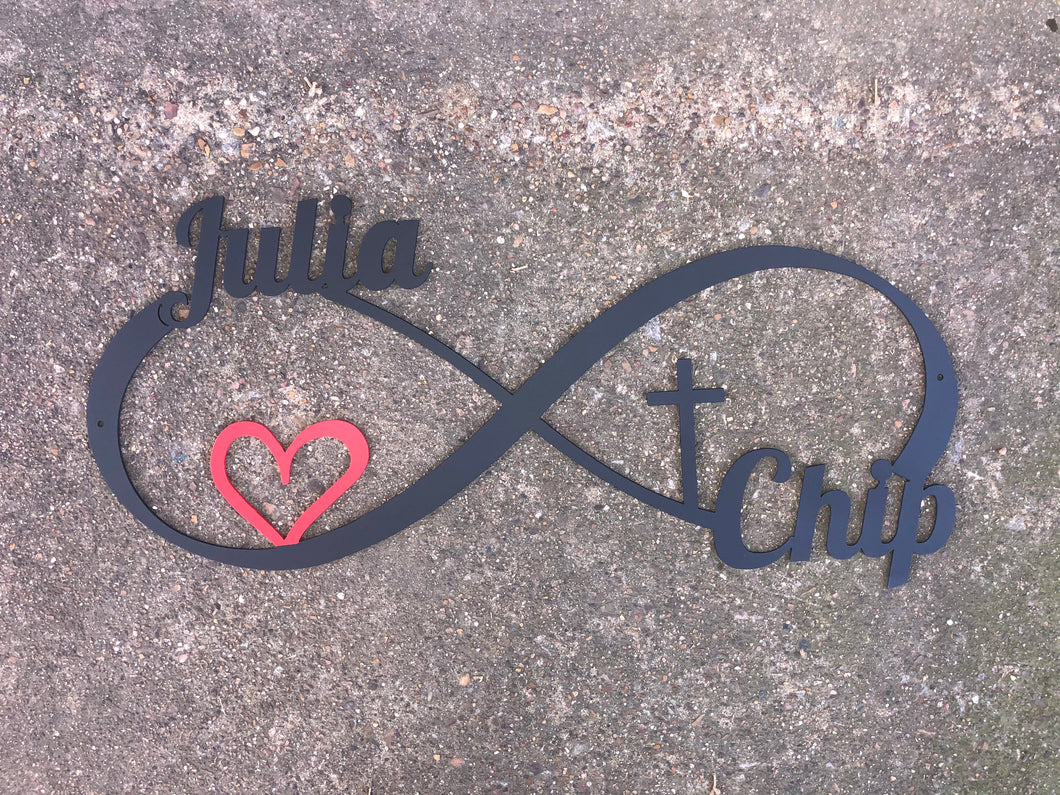 Julia
Chip